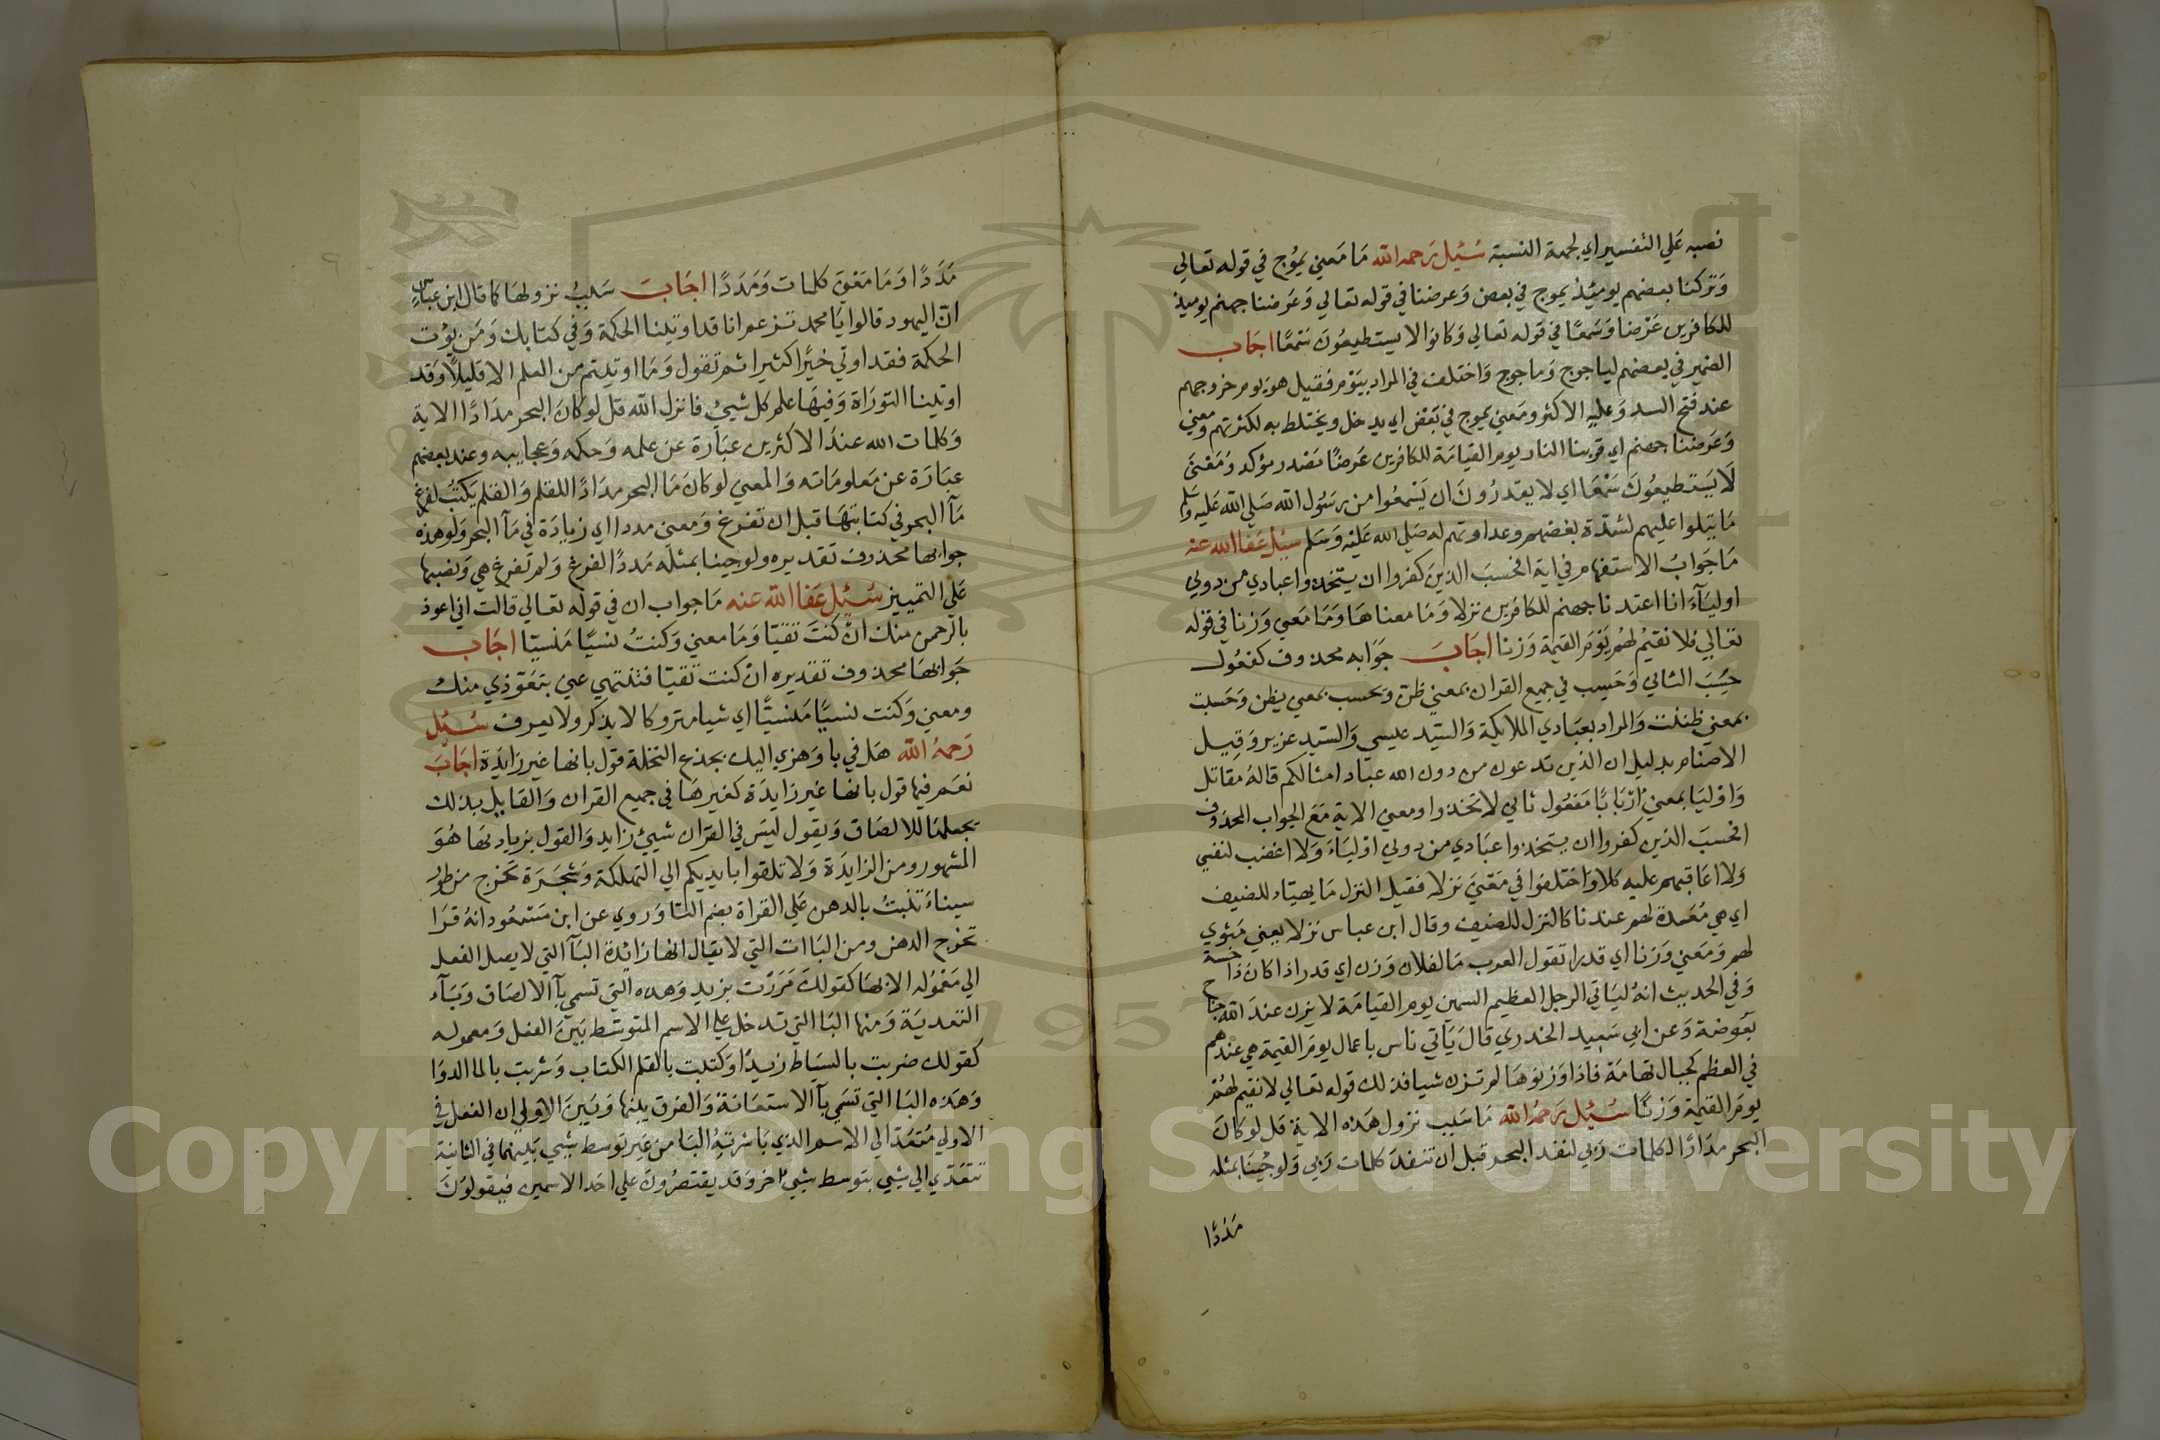 نصبه علي التفسير اي لجهة النسبة سُئيل رحمه الله ما معني يموج في قوله تعالي
وتركنا بعضهم يوميذ يموج في بعض وعرضنا في قوله تعالي وعرضنا جهنم يوميذ
للكافرين عرضا وسمعًا في قوله تعالي وكانوا لا يستطيعون سمعًا اجاب
الضمير في بعضهم لياجوج وماجوج واختلف في المراد بيوم فقيل هو يوم خروجهم
عند فتح السد وعليه الاكثر ومعني يموج في بعض اي يدخل ويختلط به لكثرتهم ومعني
وعرضنا جهنم اي قربنا النار يوم القيامة للكافرين عرضًا مصدر مؤكد ومعني
لا يستطيعون سمعا اي لا يقدرون ان يسمعوا من رسول الله صلي الله عليه وسلم
ما يتلوا عليهم لشدة بغضهم وعداوتهم له صلي الله عليه وسلم سيُل عفا الله عنه
ما جواب الاستفهام في اية افحسب الذين كفروا ان يتخذوا عبادي من دوني
اوليآء انا اعتدنا جهنم للكافرين نزلا وما معناها وما معني وزنا في قوله
تعالي فلا نقيم لهم يوم القيمة وزنا اجاب جوابه محذوف كفعول
حسب الثاني وحسب في جميع القران بمعني ظن ويحسب بمعني يظن وحسبت
بمعني ظننت والمراد بعبادي الملايكة والسيد عيسي والسيد عزير وقيل
الاصنام بدليل ان الذين تدعون من دون الله عباد امثالكم قاله مقاتل
واوليا بمعني اربابًا مفعول ثاني لاتخذوا ومعني الاية مع الجواب المحذوف
افحسب الذين كفروا ان يتخذوا عبادي من دوني اولياء ولا اغضب لنفسي
ولا اعاقبهم عليه كلا واختلفوا في معني نزلا فقيل النزل ما يهيّاء للضيف
اي هي مُعَدة لهم عندنا كالنزل للضيف وقال ابن عباس نزلا يعني مثوي
لهم ومعني وزنا اي قدرا تقول العرب ما لفلان وزن اي قدر اذا كان ذا خسة
وفي الحديث انه ليأتي الرجل العظيم السمين يوم القيامة لا يزن عند الله جناح
بعوضة وعن ابي سعيد الخدري قال يأتي ناس باعمال يوم القيمة هي عندهم
في العظم كجبال تهامة فاذا وزنوها لم تزن شيا فذلك قوله تعالي لا نقيم لهم
يوم القيمة وزنًا سُئل رحمه الله ما سبب نزول هذه الاية قل لو كان
البحر مدادًا لكلمات ربي لنفد البحر قبل ان تنفد كلمات ربي ولو جينا بمثله
مَدَدًا
مَدَدًا وما معني كلمات ومَددًا اجاب سبب نزولها كما قال ابن عباس
ان اليهود قالوا يا محمد تزعم انا قد اوتينا الحكمة وفي كتابك ومن يؤت
الحكمة فقد اوتي خيرا كثيرا ثم تقول وما اوتيتم من العلم الا قليلا وقد
اوتينا التوراة وفيها علم كل شيئ فانزل الله قل لو كان البحر مدادًا الاية
وكلمات الله عند الاكثرين عبارة عن علمه وحكمه وعجايبه وعند بعضهم
عبارة عن معلوماته والمعني لو كان ما البحر مدادًا للقلم والقلم يكتب لفرغ
مآ البحر في كتابتها قبل ان تفرغ ومعني مددا اي زيادة في مآ البحر ولو هذه
جوابها محذوف تقديره ولو جينا بمثله مددًا لفرغ ولم تفرغ هي ونصبها
علي التمييز سُئيل عفا الله عنه ما جواب ان في قوله تعالي قالت اني اعوذ
بالرحمن منك ان كنت تقيّا وما معني وكنتُ نسيًا منسيّا اجاب
جوابها محذوف تقديره ان كنت تقيّا فتنتهي عني بتعوّذي منك
ومعني وكنت نسيًا منسيًّا اي شيا متروكا لا يذكر ولا يعرف سُئل
رحمه الله هل في با وهزي اليك بجذع النخلة قول بانها غير زايدة اجاب
نعم فيها قول بانها غير زايدة كغيرها في جميع القران والقايل بذلك
يجعلها للالصاق ويقول ليس في القران شيئ زايد والقول بزيادتها هو
المشهور ومن الزايدة ولا تلقوا بايديكم الي التهلكة وشجرة تخرج من طور
سيناء تنبت بالدهن علي القراة بضم التا وروي عن ابن مسعود انه قرا
تخرج الدهن ومن الباات التي لا يقال انها زائدة البآ التي لا يصل الفعل
الي معموله الا بها كقولك مررت بزيد وهذه التي تسمي بآ الالصاق وبآء
التعدية ومنها البا التي تدخل علي الاسم المتوسط بين الفعل ومعموله
كقولك ضربت بالسياط زيدًا وكتبت بالقلم الكتاب وشربت بالما الدوا
وهذه البا التي تسمي بآ الاستعانة والفرق بينها وبين الاولي ان الفعل في
الاولي متعدّ الي الاسم الذي باشرته البا من غير توسط شيئ بينهما في الثانية
تتعدّي الي شيئ بتوسط شيئ اخر وقد يقتصرون علي احد الاسمين فيقولون
Copyright © King Saud University
1957